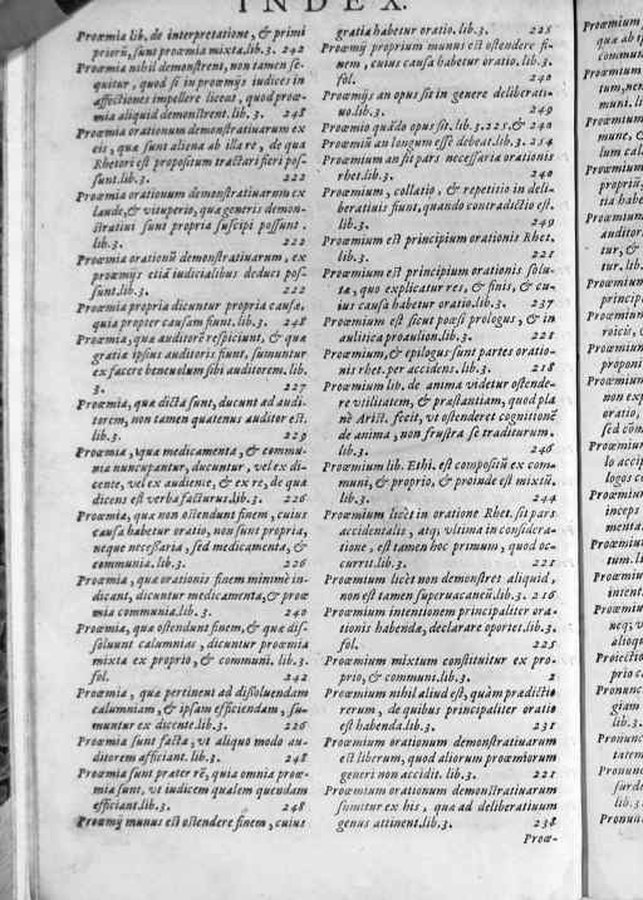 INDEX.
Proœmia lib. de interpretatione, & primi
priorū, sunt proœmia mixta. lib. 3. 242
Proœmia nihil demonstrent, non tamen se-
quitur, quod si in proœmijs iudices in
affectiones impellere liceat, quod proœ-
mia aliquid demonstrent. lib. 3. 248
Proœmia orationum demonstratiuarum ex
eis, quæ sunt aliena ab illa re, de qua
Rhetori est propositum tractari fieri pos-
sunt. lib. 3. 222
Proœmia orationum demonstratiuarum ex
laude, & vituperio, quæ generis demon-
stratiui sunt propria suscipi possunt.
lib. 3. 222
Proœmia orationū demonstratiuarum, ex
proœmijs etiā iudicialibus deduci pos-
sunt. lib. 3. 222
Proœmia propria dicuntur propria causæ,
quia propter causam fiunt. lib. 3. 248
Proœmia, quæ auditorē respiciunt, & quæ
gratia ipsius auditoris fiunt, sumuntur
ex facere beneuolum sibi auditorem. lib.
3. 227
Proœmia, quæ dicta sunt, ducunt ad audi-
torem, non tamen quatenus auditor est.
lib. 3. 229
Proœmia, quæ medicamenta, & commu-
nia nuncupantur, ducuntur, vel ex di-
cente, vel ex audiente, & ex re, de qua
dicens est verba facturus. lib. 3. 226
Proœmia, quæ non ostendunt finem, cuius
causa habetur oratio, non sunt propria,
neque necessaria, sed medicamenta, &
communia. lib. 3. 226
Proœmia, quæ orationis finem minimè in-
dicant, dicuntur medicamenta, & proœ
mia communia. lib. 3. 240
Proœmia, quæ ostendunt finem, & quæ dis-
soluunt calumnias, dicuntur proœmia
mixta ex proprio, & communi. lib. 3.
fol. 242
Proœmia, quæ pertinent ad dissoluendam
calumniam, & ipsam efficiendam, su-
muntur ex dicente. lib. 3. 226
Proœmia sunt facta, vt aliquo modo au-
ditorem afficiant. lib. 3. 248
Proœmia sunt præter rē, quia omnia proœ-
mia sunt, vt iudicem qualem quendam
efficiant. lib. 3. 248
Proœmij munus est ostendere finem, cuius
gratia habetur oratio. lib. 3. 225
Proœmij proprium munus est ostendere fi-
nem, cuius causa habetur oratio. lib. 3.
fol. 240
Proœmijs an opus sit in genere deliberati-
uo. lib. 3. 249
Proœmio quādo opus sit. lib. 3. 225, & 240
Proœmiū an longum esse debeat. lib. 3. 254
Proœmium an sit pars necessaria orationis
rhet. lib. 3. 240
Proœmium, collatio, & repetitio in deli-
beratiuis fiunt, quando contradictio est.
lib. 3. 249
Proœmium est principium orationis Rhet.
lib. 3. 221
Proœmium est principium orationis solu-
tæ, quo explicatur res, & finis, & cu-
ius causa habetur oratio. lib. 3. 237
Proœmium est sicut poæsi prologus, & in
aulitica proaulion. lib. 3. 221
Proœmium, & epilogus sunt partes oratio-
nis rhet. per accidens. lib. 3. 218
Proœmium lib. de anima videtur ostende-
re vtilitatem, & præstantiam, quod pla
nè Arist. fecit, vt ostenderet cognitionē
de anima, non frustra se traditurum.
lib. 3. 246
Proœmium lib. Ethi. est compositū ex com-
muni, & proprio, & proinde est mixtū.
lib. 3. 244
Proœmium licèt in oratione Rhet. sit pars
accidentalis, atq; vltima in considera-
tione, est tamen hoc primum, quod oc-
currit. lib. 3. 221
Proœmium licèt non demonstret aliquid,
non est tamen superuacaneū. lib. 3. 216
Proœmium intentionem principaliter ora-
tionis habenda, declarare oportet. lib. 3.
fol. 225
Proœmium mixtum constituitur ex pro-
prio, & communi. lib. 3. 2
Proœmium nihil aliud est, quàm prædictio
rerum, de quibus principaliter oratio
est habenda. lib. 3. 231
Proœmium orationum demonstratiuarum
est liberum, quod aliorum proœmiorum
generi non accidit. lib. 3. 221
Proœmium orationum demonstratiuarum
sumitur ex his, quæ ad deliberatiuum
genus attinent. lib. 3. 238
Proœ-